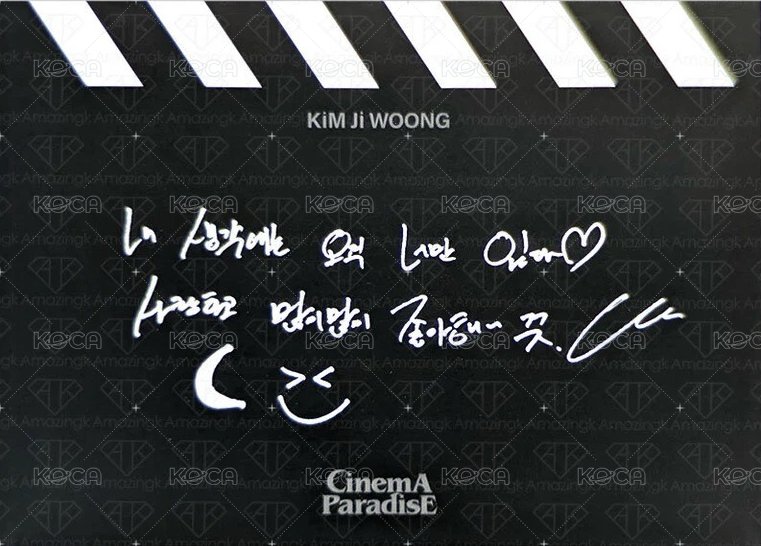 KiM Ji WOONG
내 생각에는 오직 너만 있다♡
사랑하고 많이많이 좋아해~ 끗.
CinemA
ParadisE
KOCA
Amazingk